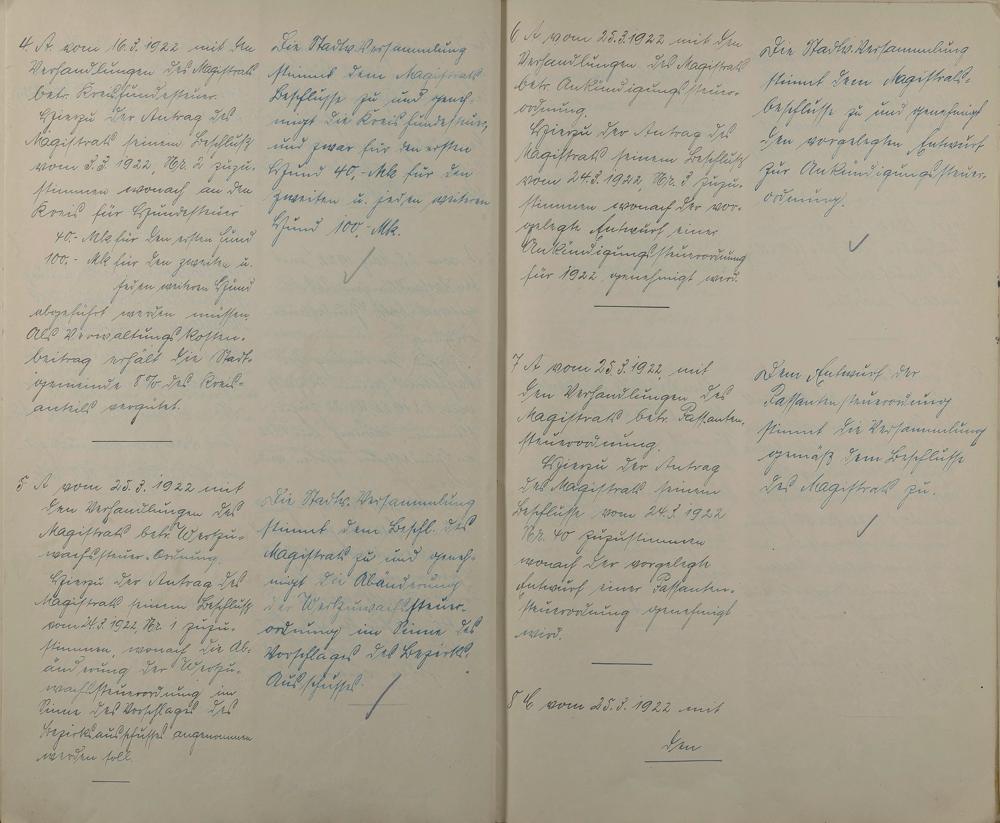 4. A. vom 16.3.1922 mit den
Verhandlungen des Magistrats
betr. Kreishundesteuer.
Hierzu der Antrag des
Magistrats seinem Beschluß
vom 3.3.1922, Nr. 2 zuzu-
stimmen wonach an den
Kreis für Hundesteuer
40,- Mk für den ersten Hund
100,- Mk für den zweiten u.
jeden weiteren Hund
abgeführt werden müssen.
Als Verwaltungskosten-
beitrag erhält die Stadt-
gemeinde 8 % des Kreis-
anteils vergütet.
Die Stadtv. Versammlung
stimmt dem Magistrats
Beschlusse zu und geneh-
migt die Kreishundesteuer,
und zwar für den ersten
Hund 40,- Mk für den
zweiten u. jeden weiteren
Hund 100,- Mk.
5 A vom 25.3.1922 mit
den Verhandlungen des
Magistrats betr. Wertzu-
wachssteuer-Ordnung.
Hierzu der Antrag des
Magistrats seinem Beschluß
vom 24.3.1922, Nr. 1 zuzu-
stimmen, wonach die Ab-
änderung der Wertzu-
wachssteuerordnung im
Sinne des Vorschlages des
Bezirksausschusses angenommen
werden soll.
Die Stadtv. Versammlung
stimmt dem Beschl. des
Magistrats zu und geneh-
migt die Abänderung
der Wertzuwachssteuer-
ordnung im Sinne des
Vorschlages des Bezirks
Ausschusses.
6 A vom 25.3.1922 mit den
Verhandlungen des Magistrats
betr. Ankündigungssteuer-
ordnung.
Hierzu der Antrag des
Magistrats seinem Beschluß
vom 24.3.1922, Nr. 3 zuzu-
stimmen wonach der vor-
gelegte Entwurf einer
Ankündigungssteuerordnung
für 1922 genehmigt wird.
Die Stadtv. Versammlung
stimmt dem Magistrats-
beschlusse zu und genehmigt
den vorgelegten Entwurf
zur Ankündigungssteuer-
ordnung.
7 A vom 25.3.1922 mit
den Verhandlungen des
Magistrats betr. Passanten-
steuerordnung.
Hierzu der Antrag
des Magistrats seinem
Beschlusse vom 24.3.1922
Nr. 40 zuzustimmen
wonach der vorgelegte
Entwurf einer Passanten-
steuerordnung genehmigt
wird.
Dem Entwurf der
Passantensteuerordnung
stimmt die Versammlung
gemäß dem Beschlusse
des Magistrats zu.
8 E vom 25.3.1922 mit
den